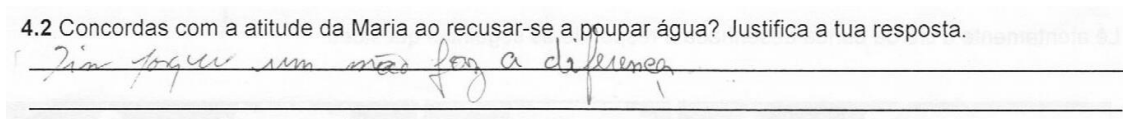 4.2 Concordas com a atitude da Maria ao recusar-se a poupar água? Justifica a tua resposta.
Sim porque um não faz a diferença